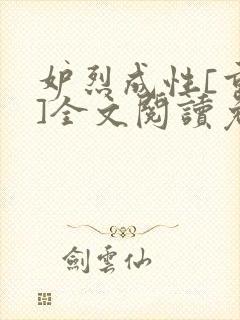 妒烈成性[重
]全文閱讀免
劍雲仙